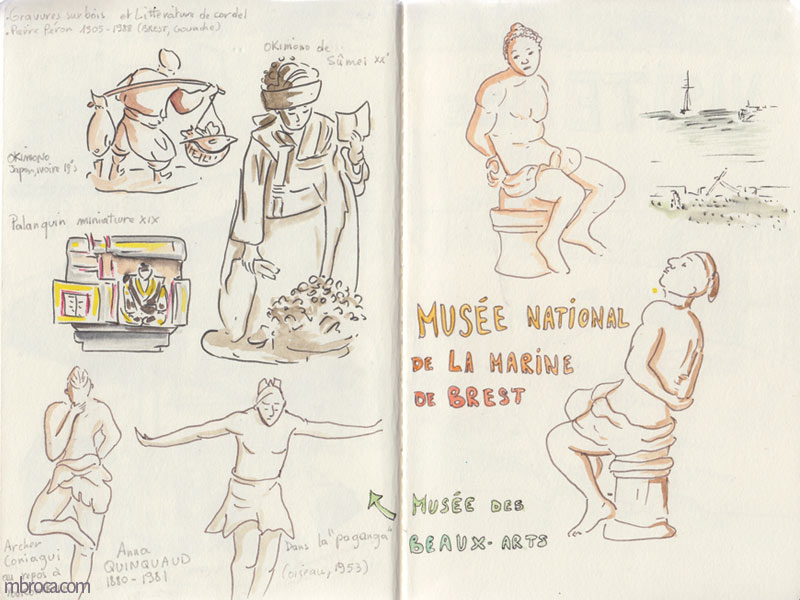 . Gravures sur bois et Littérature de cordel
. Pierre Péron 1905-1988 (BREST, Gouache)
OKIMONO de
Sûmei XX°
OKIMONO
Japon, ivoire 19°s
Palanquin miniature XIX
Archer
Coniagui
au repos à
Anna
QUINQUAUD
1890-1981
Dans la "paganga"
(oiseau, 1953)
MUSÉE NATIONAL
DE LA MARINE
DE BREST
MUSÉE DES
BEAUX-ARTS
mbroca.com